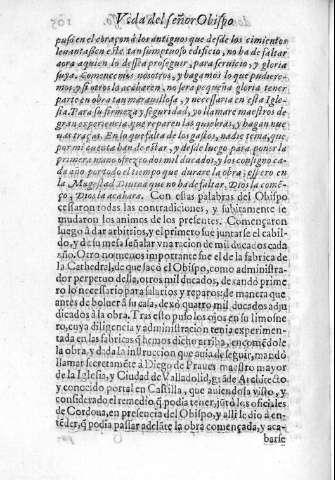 Vida del señor Obispo
puso en el coraçon à los antiguos que desde los cimientos
leuantassen este tan sumptuoso edificio, no ha de faltar
aora a quien lo dessea proseguir, para seruicio, y gloria
suya. Comencemos nosotros, y hagamos lo que pudiere-
mos, y si otros lo acabaren, no serà pequeña gloria tener
parte en obra tan marauillosa, y necessaria en esta Igle-
sia. Para su firmeza y seguridad, yo llamarè maestros de
gran experiencia, que reparen las quiebras, y hagan nue-
uas traças. En lo que falta de los gastos, nadie tema, que
por mi cuenta han de estar, y desde luego para poner la
primera mano ofrezco dos mil ducados, y los consigno ca-
da año por todo el tiempo que durare la obra; espero en
la Magestad Diuina que no ha de faltar, Dios la comē-
ço, Dios la acabarà. Con estas palabras del Obispo
cessaron todas las contradiciones, y subitamente se
mudaron los animos de los presentes. Començaron
luego à dar arbitrios, y el primero fue juntarse el cabil-
do, y de su mesa señalar vna racion de mil ducados cada
año. Otro no menos importante fue el de la fabrica de
la Cathedral, de que sacò el Obispo, como administra-
dor perpetuo della, otros mil ducados, dexando prime-
ro lo necessario para salarios y reparos: de manera que
antes de boluer à su casa, dexò quatro mil ducados adju
dicados à la obra. Tras esto puso los ojos en su limosne
ro, cuya diligencia y administracion tenia experimen-
tada en las fabricas q̄ hemos dicho arriba, encomēdole
la obra, y dada la instruccion que auia de seguir, mandò
llamar secretamēte à Diego de Praues maestro mayor
de la Iglesia, y Ciudad de Valladolid, grāde Architecto
y conocido por tal en Castilla, que auiendola visto, y
considerado el remedio q̄ podia tener, jūtò los oficiales
de Cordoua, en presencia del Obispo, y alli le diò à en-
tēder, q̄ podia passar adelāte la obra començada, y aca-
barse